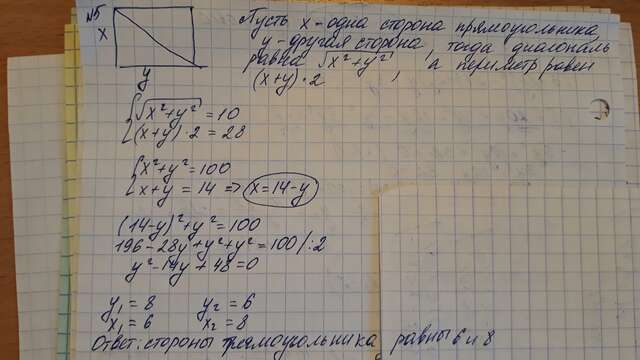 №5
x
y
Пусть x - одна сторона прямоугольника,
y - другая сторона, тогда диагональ
равна √x²+y², а периметр равен
(x+y)·2
{√x²+y² = 10
{(x+y)·2 = 28
{x²+y² = 100
{x+y = 14 => x=14-y
(14-y)²+y² = 100
196-28y+y²+y² = 100 /:2
y²-14y+48=0
y₁ = 8 y₂ = 6
x₁ = 6 x₂ = 8
Ответ: стороны прямоугольника равны 6 и 8